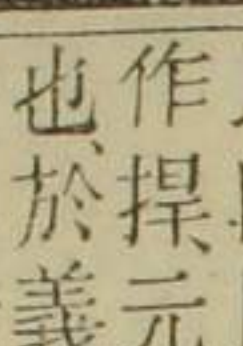 作捍、元
也、於義